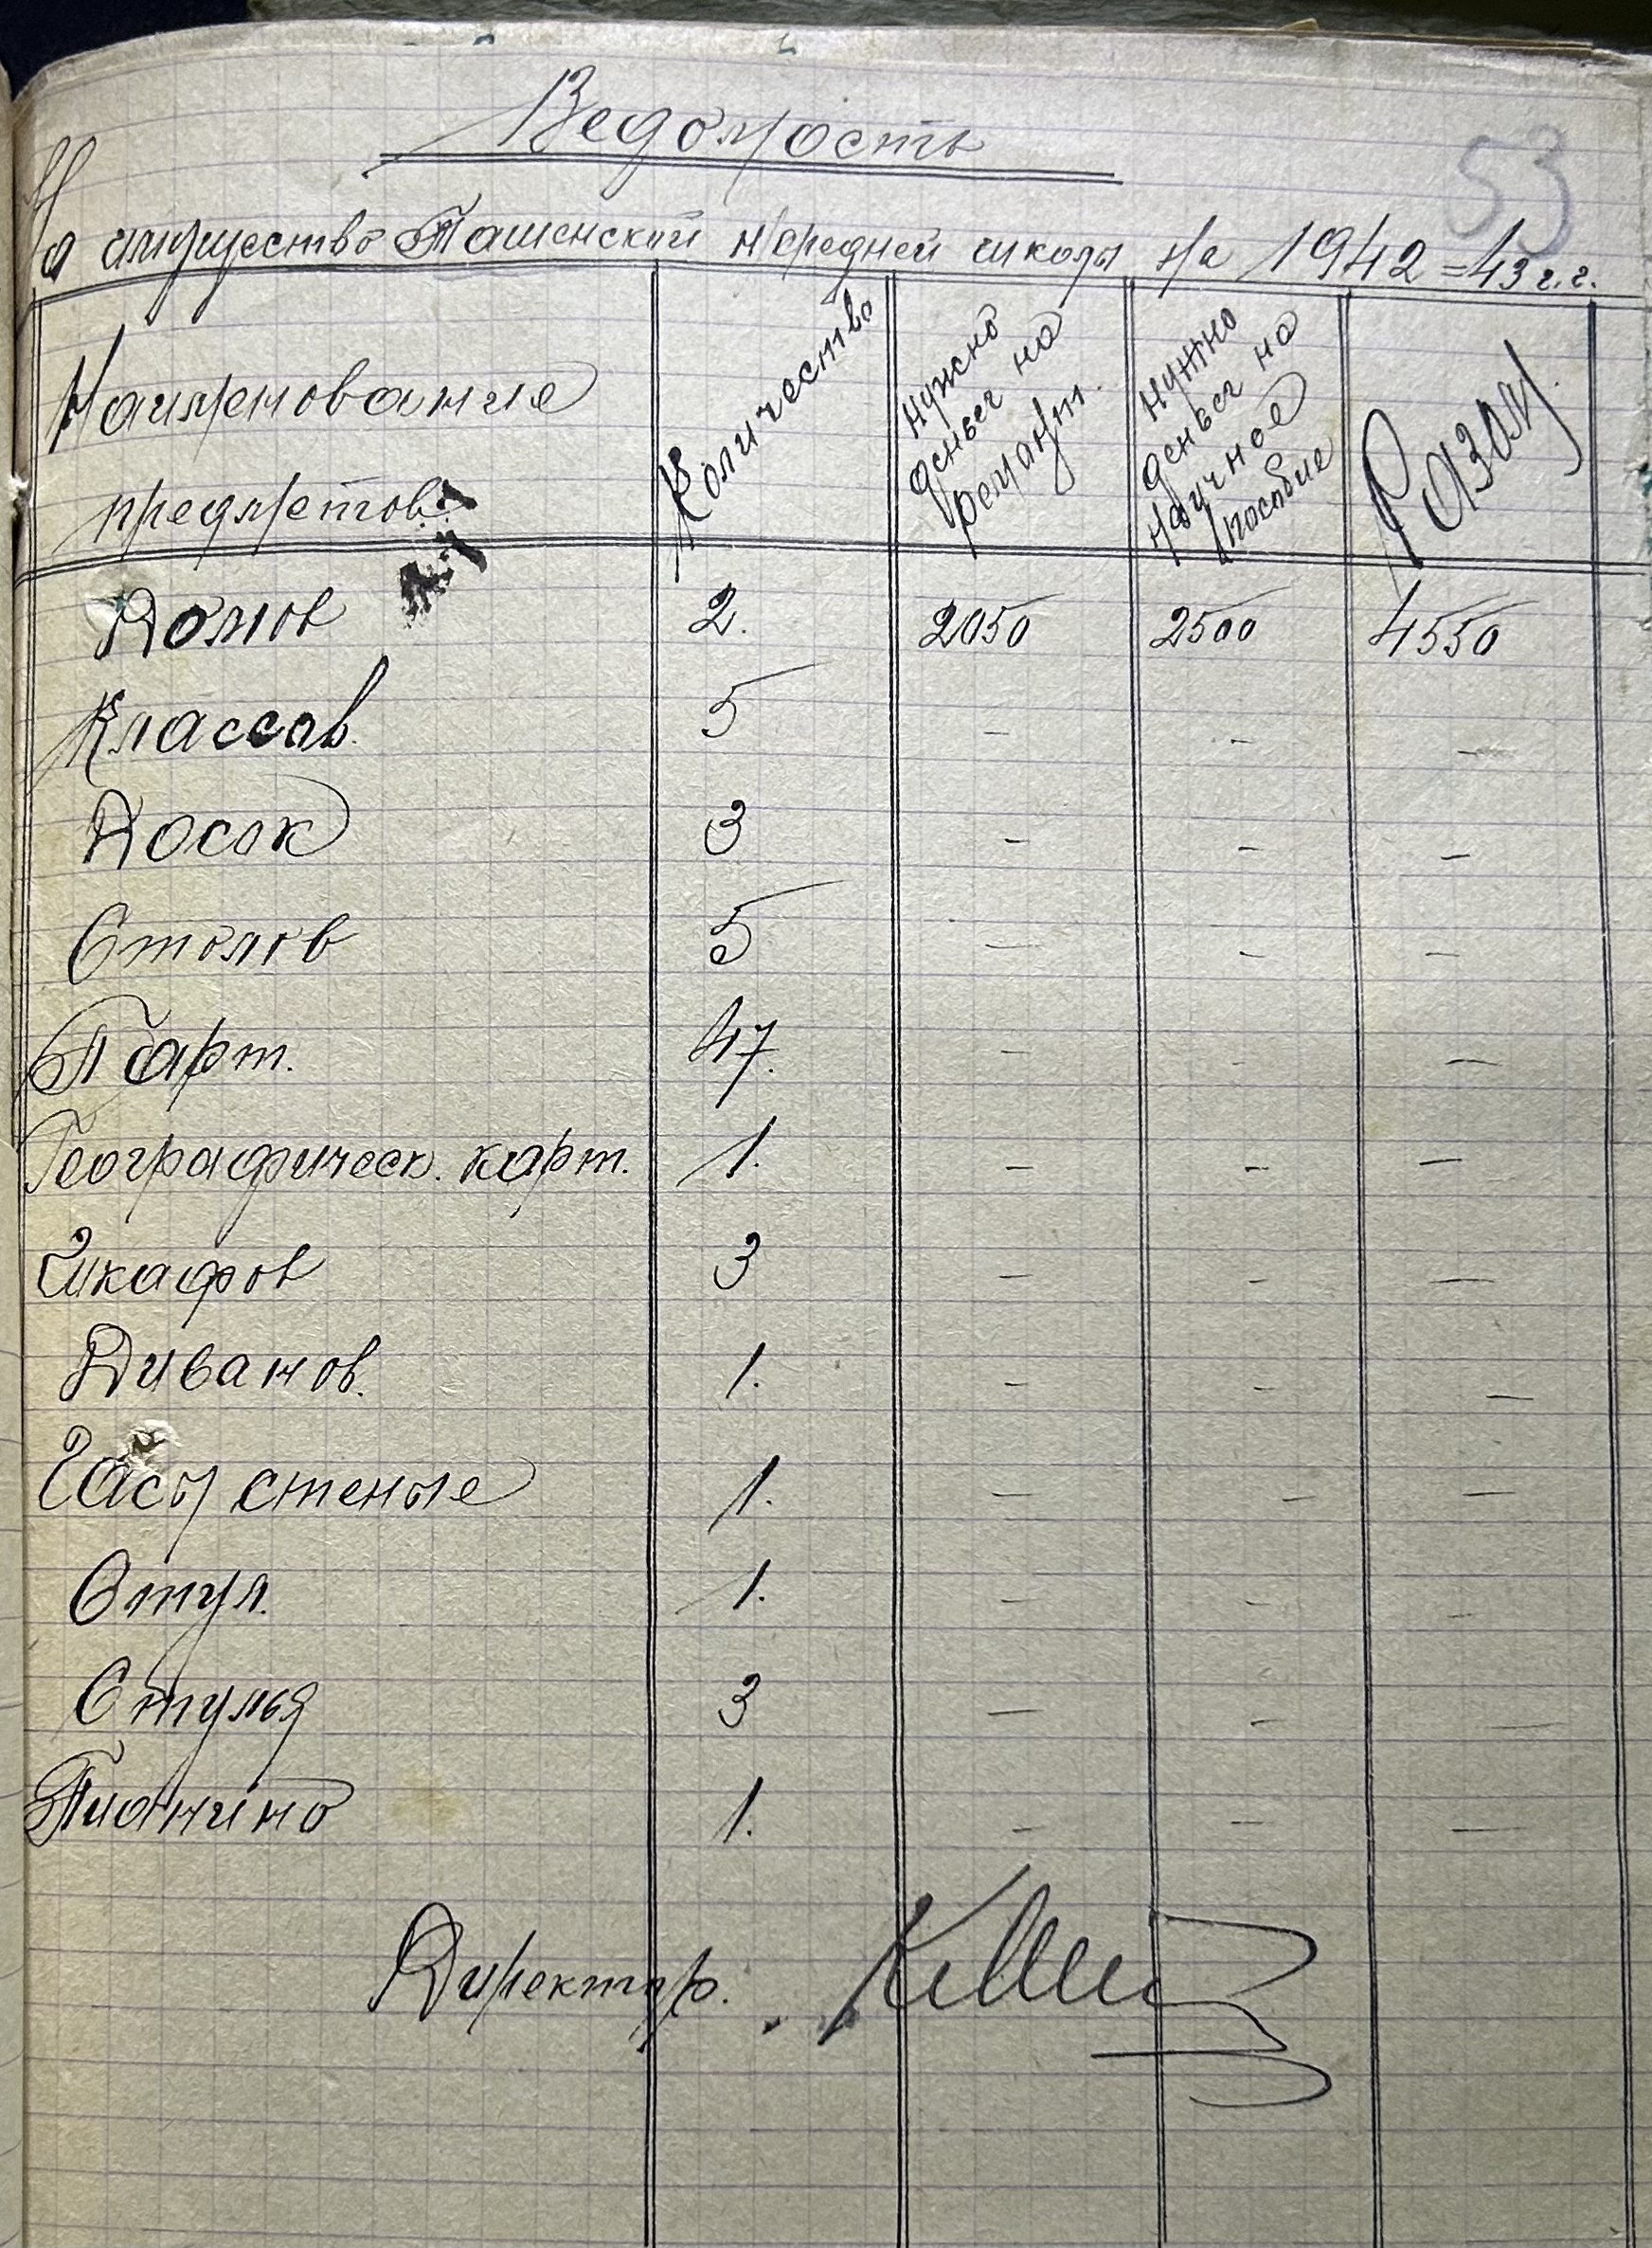 53
Ведомость
На имущество Ташенской н/средней школы на 1942=43 г.г.
Наименование предметов | Количество | Нужно деньег на ремант. | Нужно деньег на научное пособие | Разом
Домов 2. 2050 2500 4550
Классов. 5 - - -
Досок 3 - - -
Столов 5 - - -
Парт. 47. - - -
Географическ. карт. 1. - - -
Шкафов 3 - - -
Диванов. 1. - - -
Часы стеные 1. - - -
Стул. 1. - - -
Стулья 3 - - -
Пианино 1. - - -
Директор.